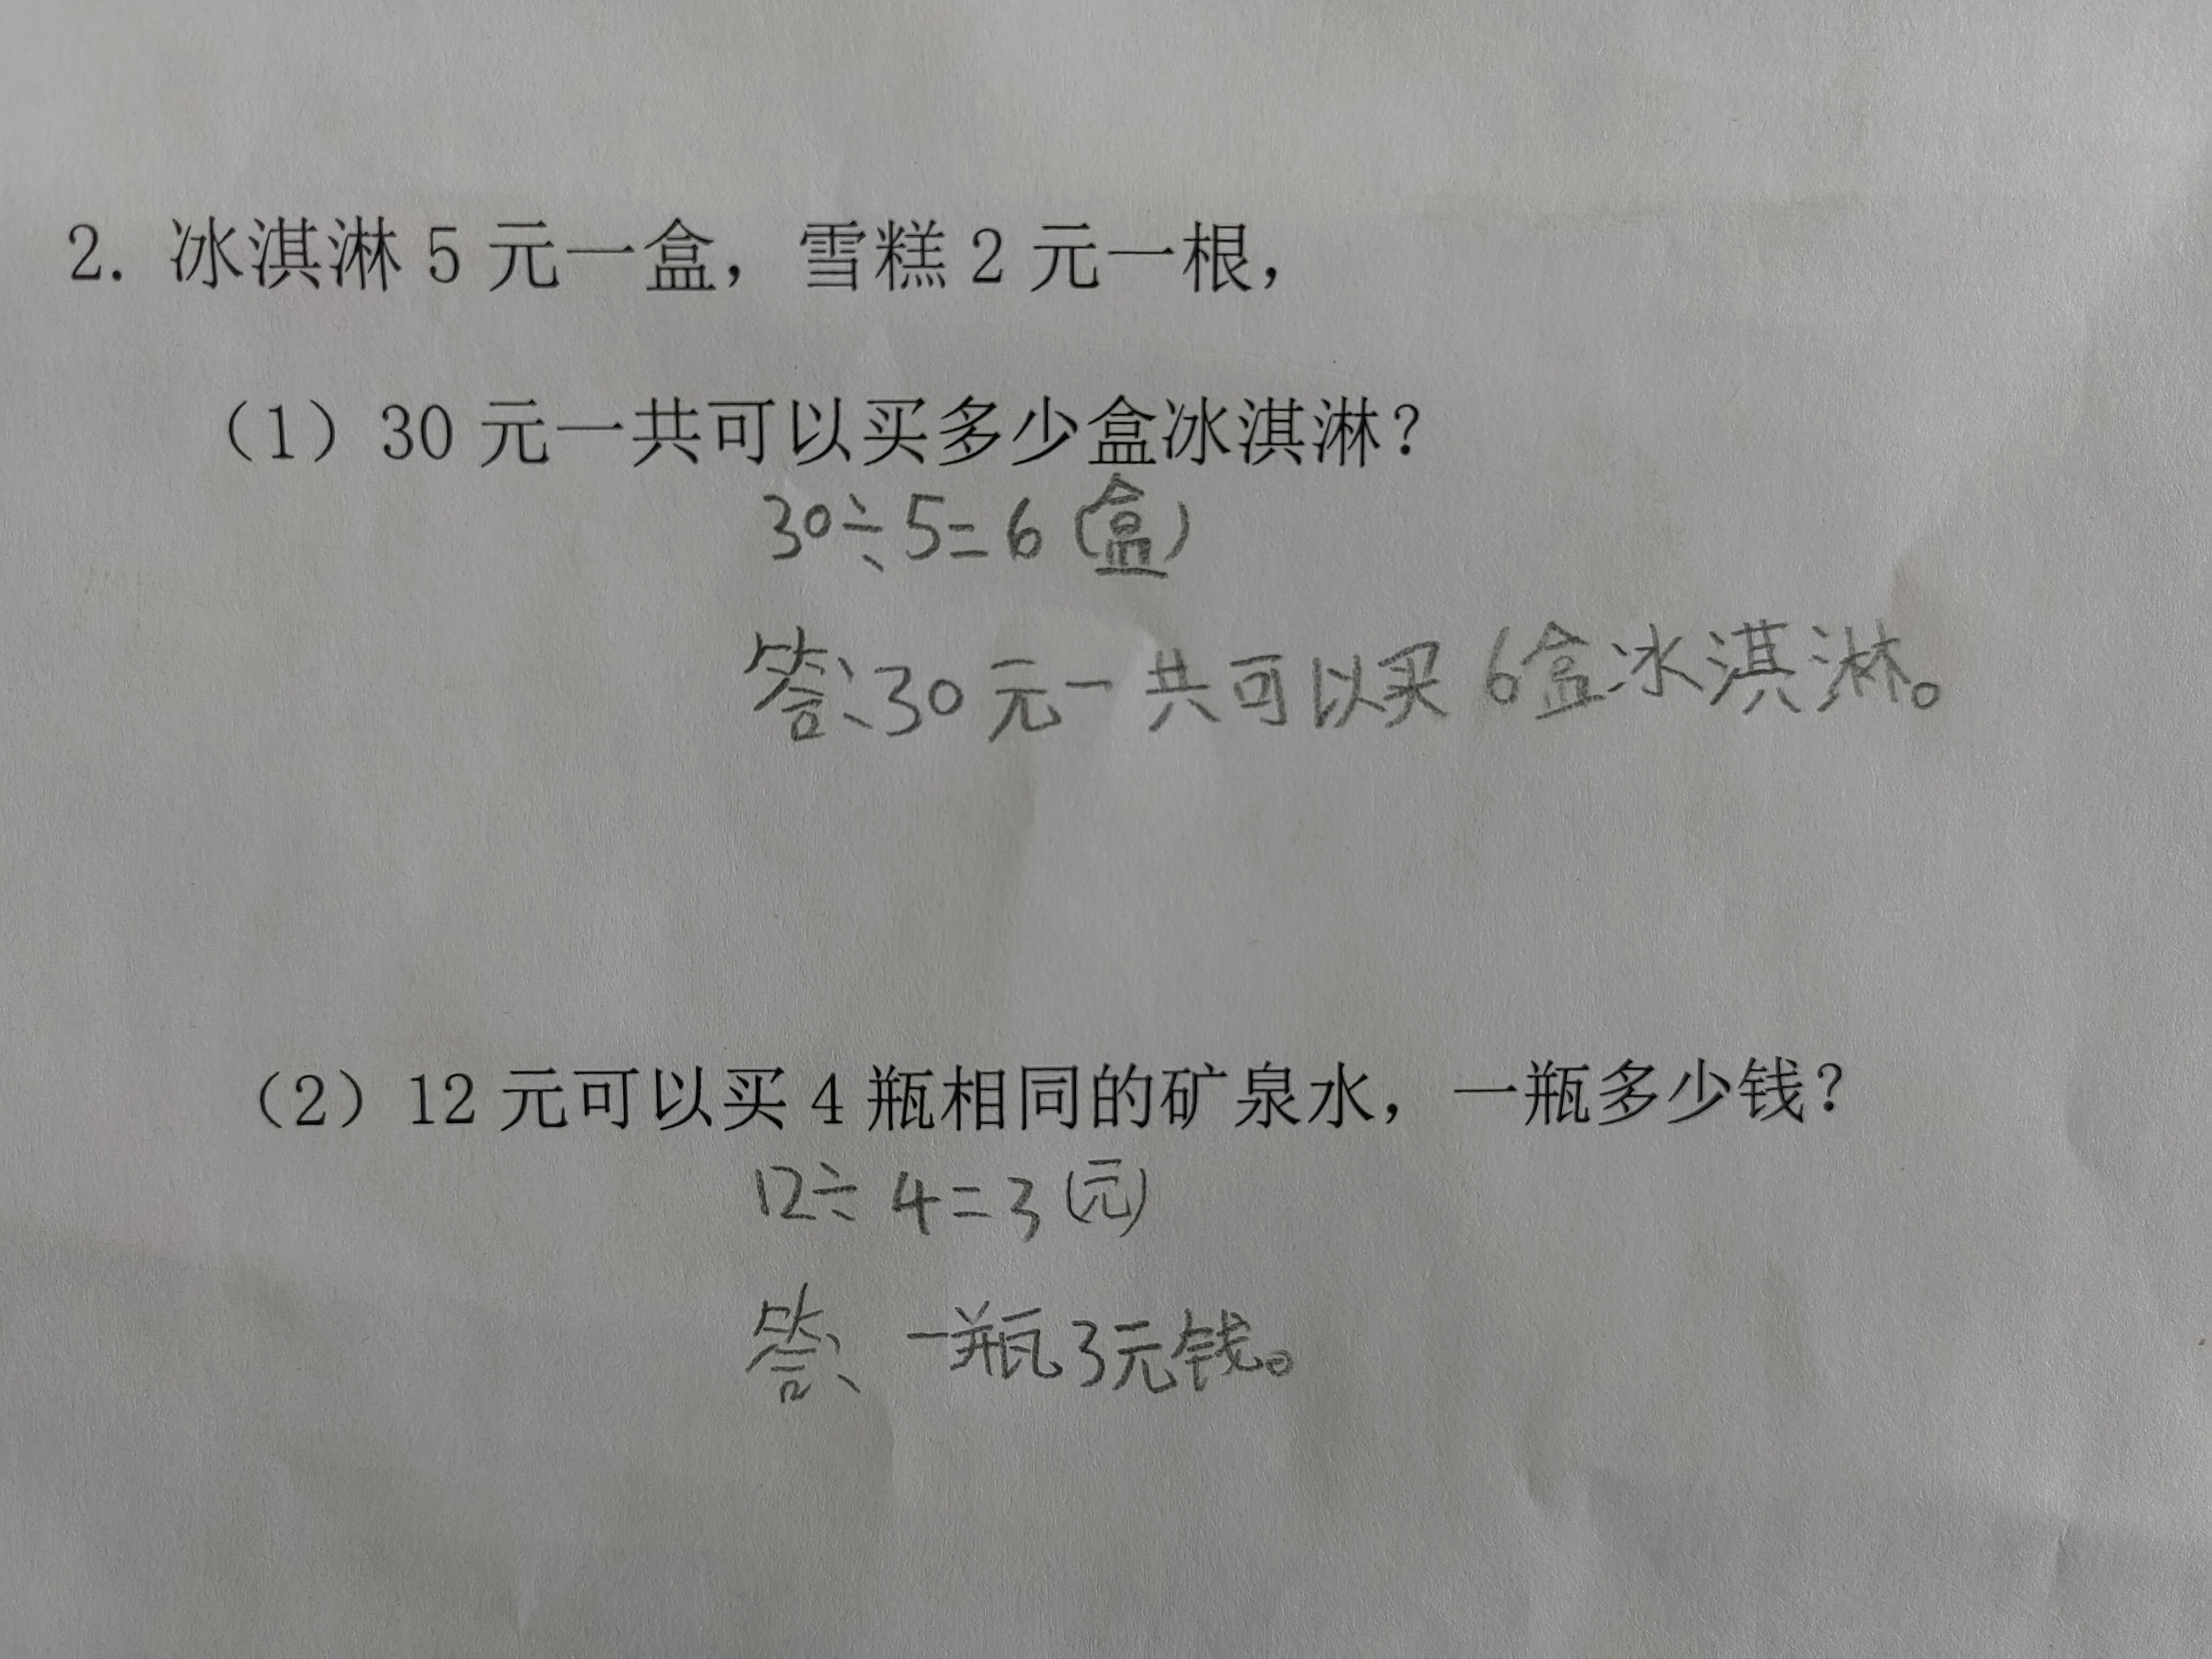 2. 冰淇淋 5 元一盒，雪糕 2 元一根，
（1）30 元一共可以买多少盒冰淇淋？
30÷5=6（盒）
答：30元一共可以买6盒冰淇淋。
（2）12 元可以买 4 瓶相同的矿泉水，一瓶多少钱？
12÷4=3（元）
答：一瓶3元钱。